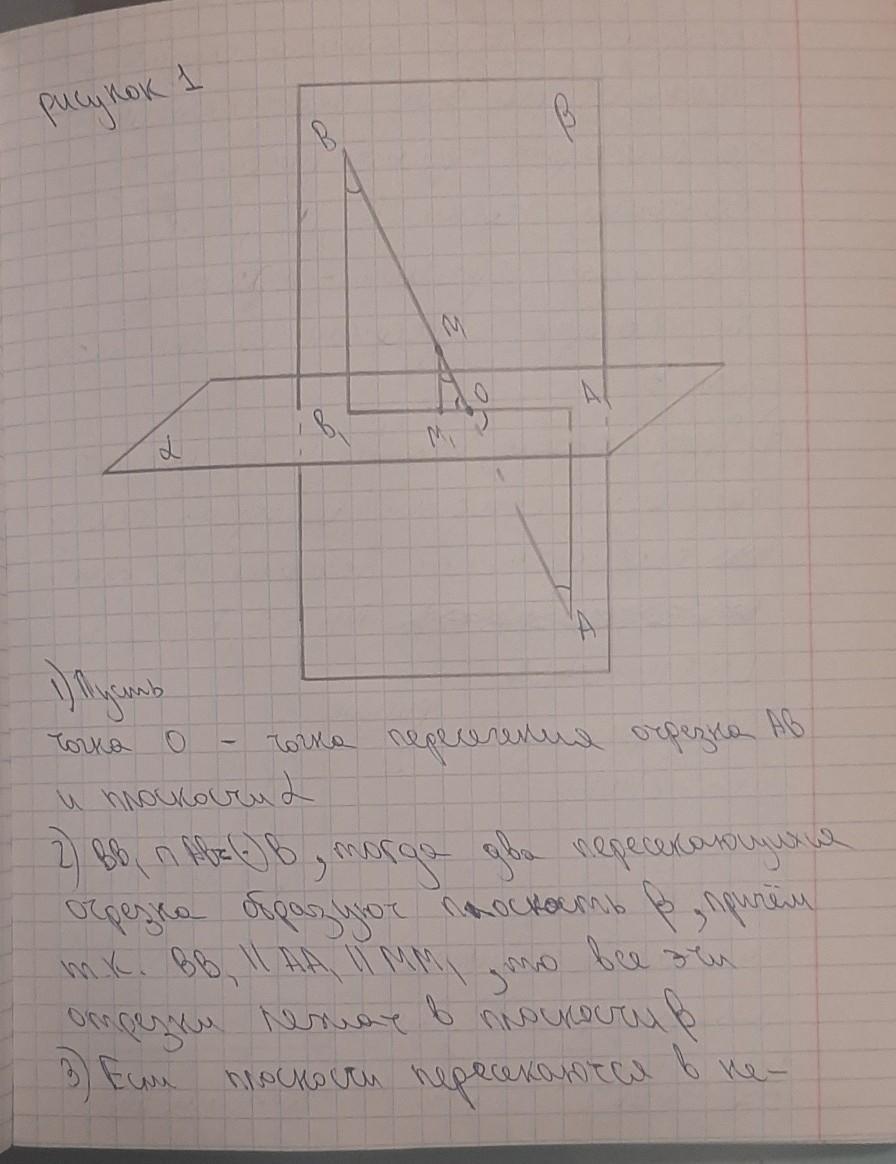 рисунок 1
β
B
M
O
A
B₁
M₁
α
A
1) Пусть
точка O – точка пересечения отрезка AB
и плоскости α
2) BB₁ ∩ AB = (·) B, тогда два пересекающихся
отрезка образуют плоскость β, причём
т.к. BB₁ || AA₁ || MM₁, то все эти
отрезки лежат в плоскости β
3) Если плоскости пересекаются в не-